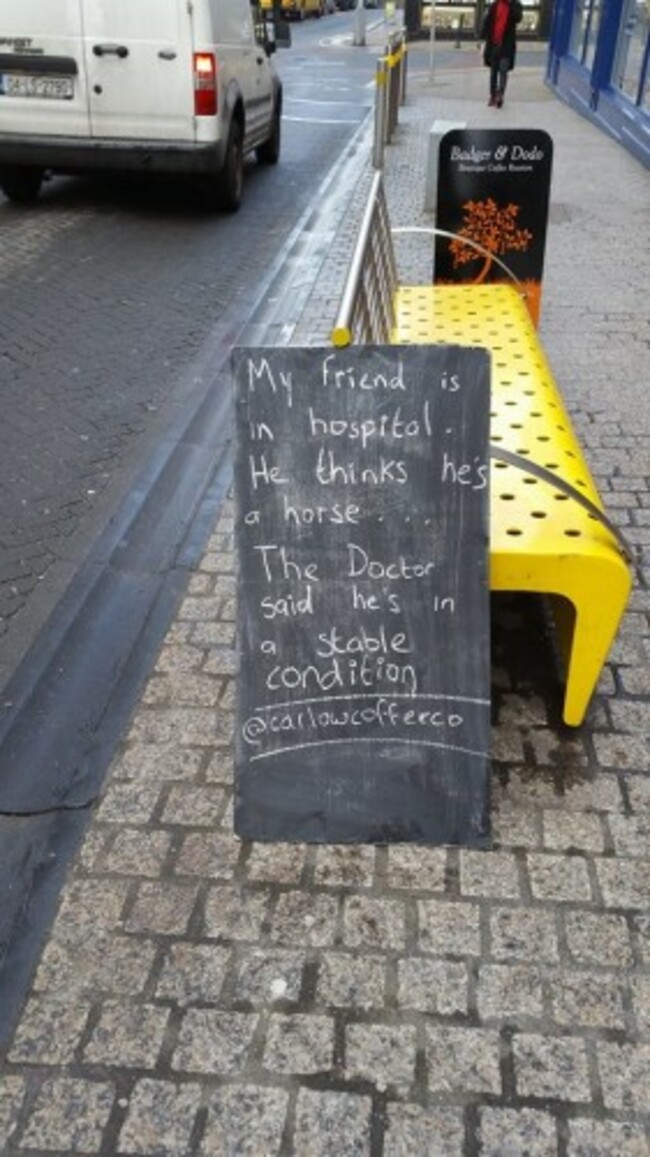 Badger & Dodo
My friend is
in hospital.
He thinks he's
a horse...
The Doctor
said he's in
a stable
condition
@carlowcoffeeco